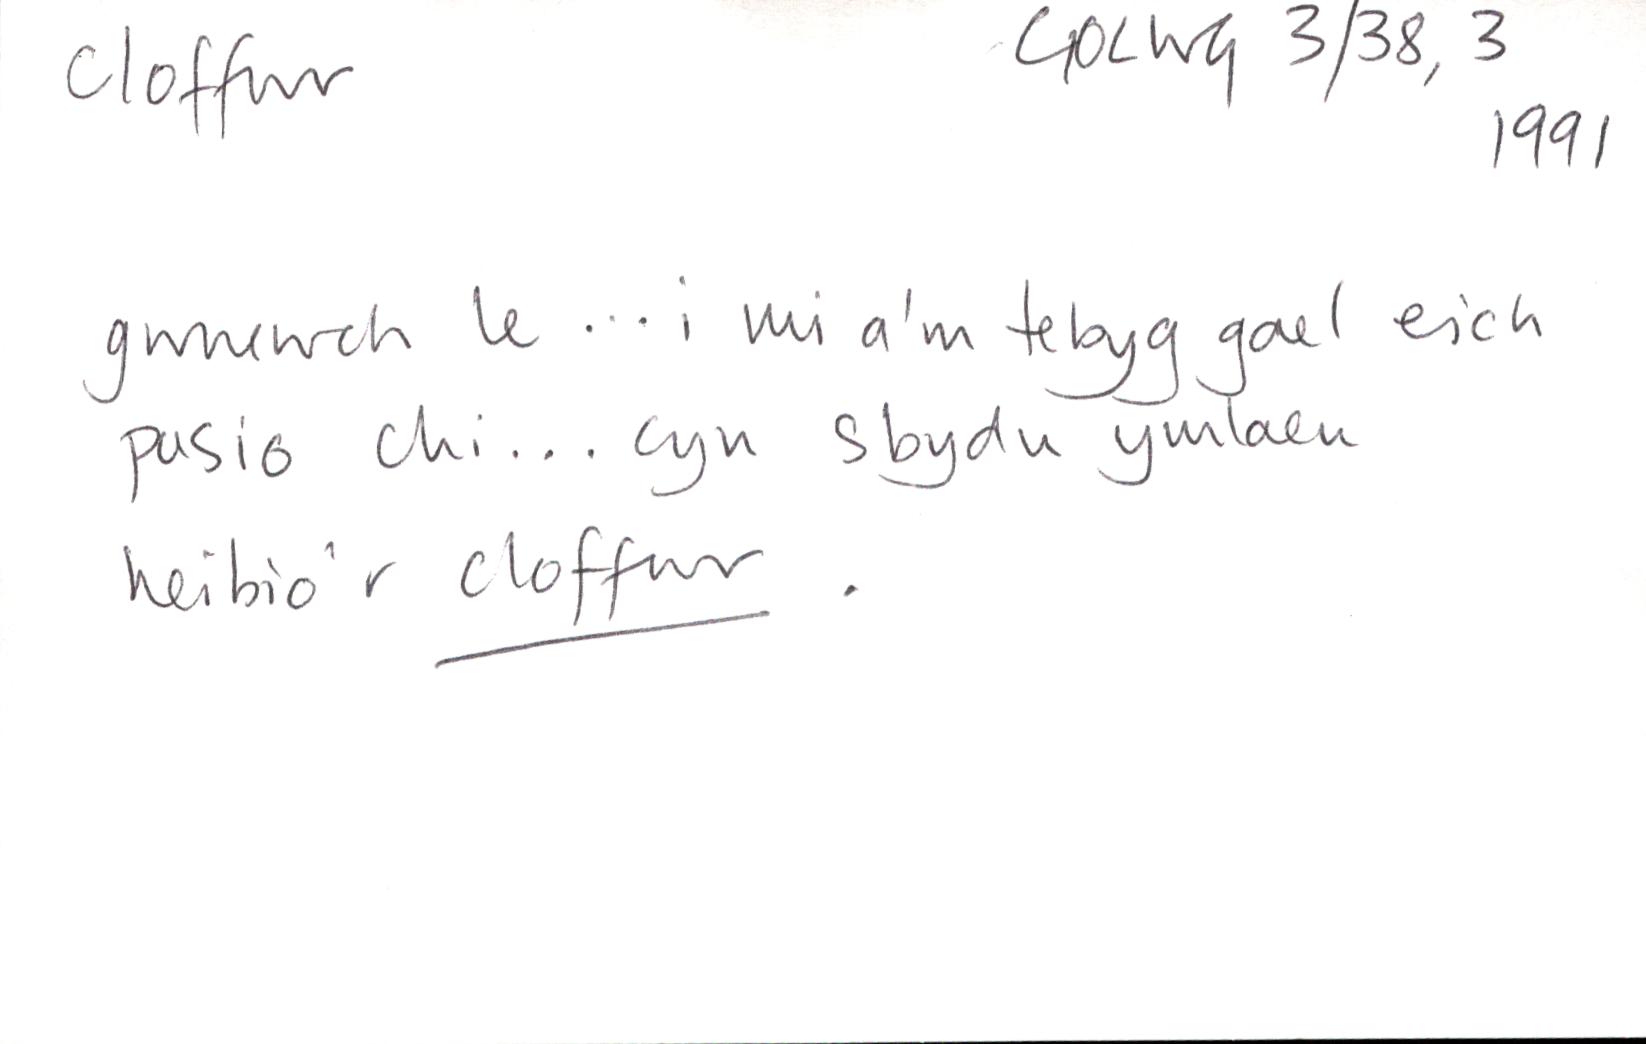 cloffwr
GOLWG 3/38, 3
1991
gwnewch le ... i mi a'm tebyg gael eich
pasio chi... cyn sbydu ymlaen
heibio'r cloffwr.